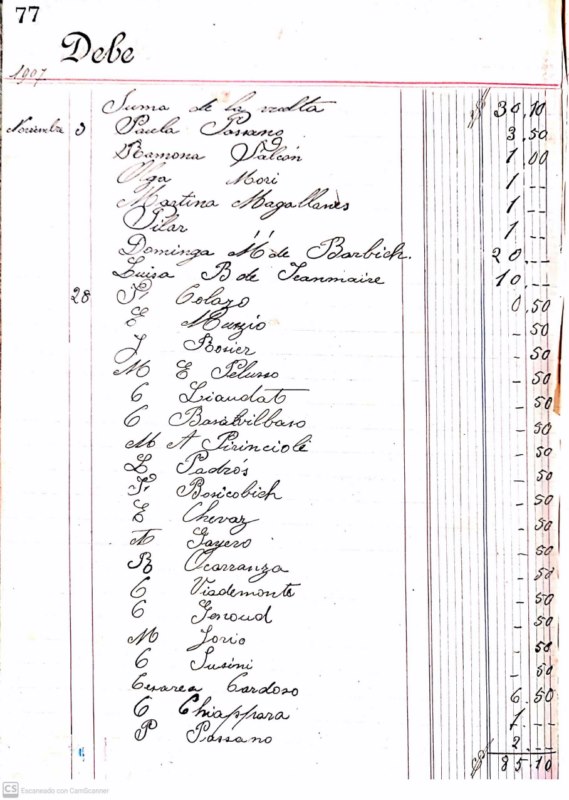 77
Debe
1907
Suma de la vuelta $ 30,10
Noviembre 3 Paula Passano 3,50
Ramona Falcón 1,00
Olga Mori 1 --
Martina Magallanes 1 --
Pilar " 1 --
Dominga M de Barbich. 20 --
Luisa B de Jeanmaire 10 --
28 F. Colazo 0,50
E Munzio - 50
J Bosier - 50
M E Pelusso - 50
C Liaudat - 50
C Basavilbaso - 50
M A Pirinciole - 50
L Padrós - 50
F. Bosicobich - 50
E Chevaz - 50
A Gayero - 50
R Ocarranza - 50
C Viademonte - 50
C Genoud - 50
M Jorio - 50
C Susini - 50
Cesarea Cardoso 6,50
C Chiappara 1 --
P Passano 2 --
$ 85,10
CS Escaneado con CamScanner